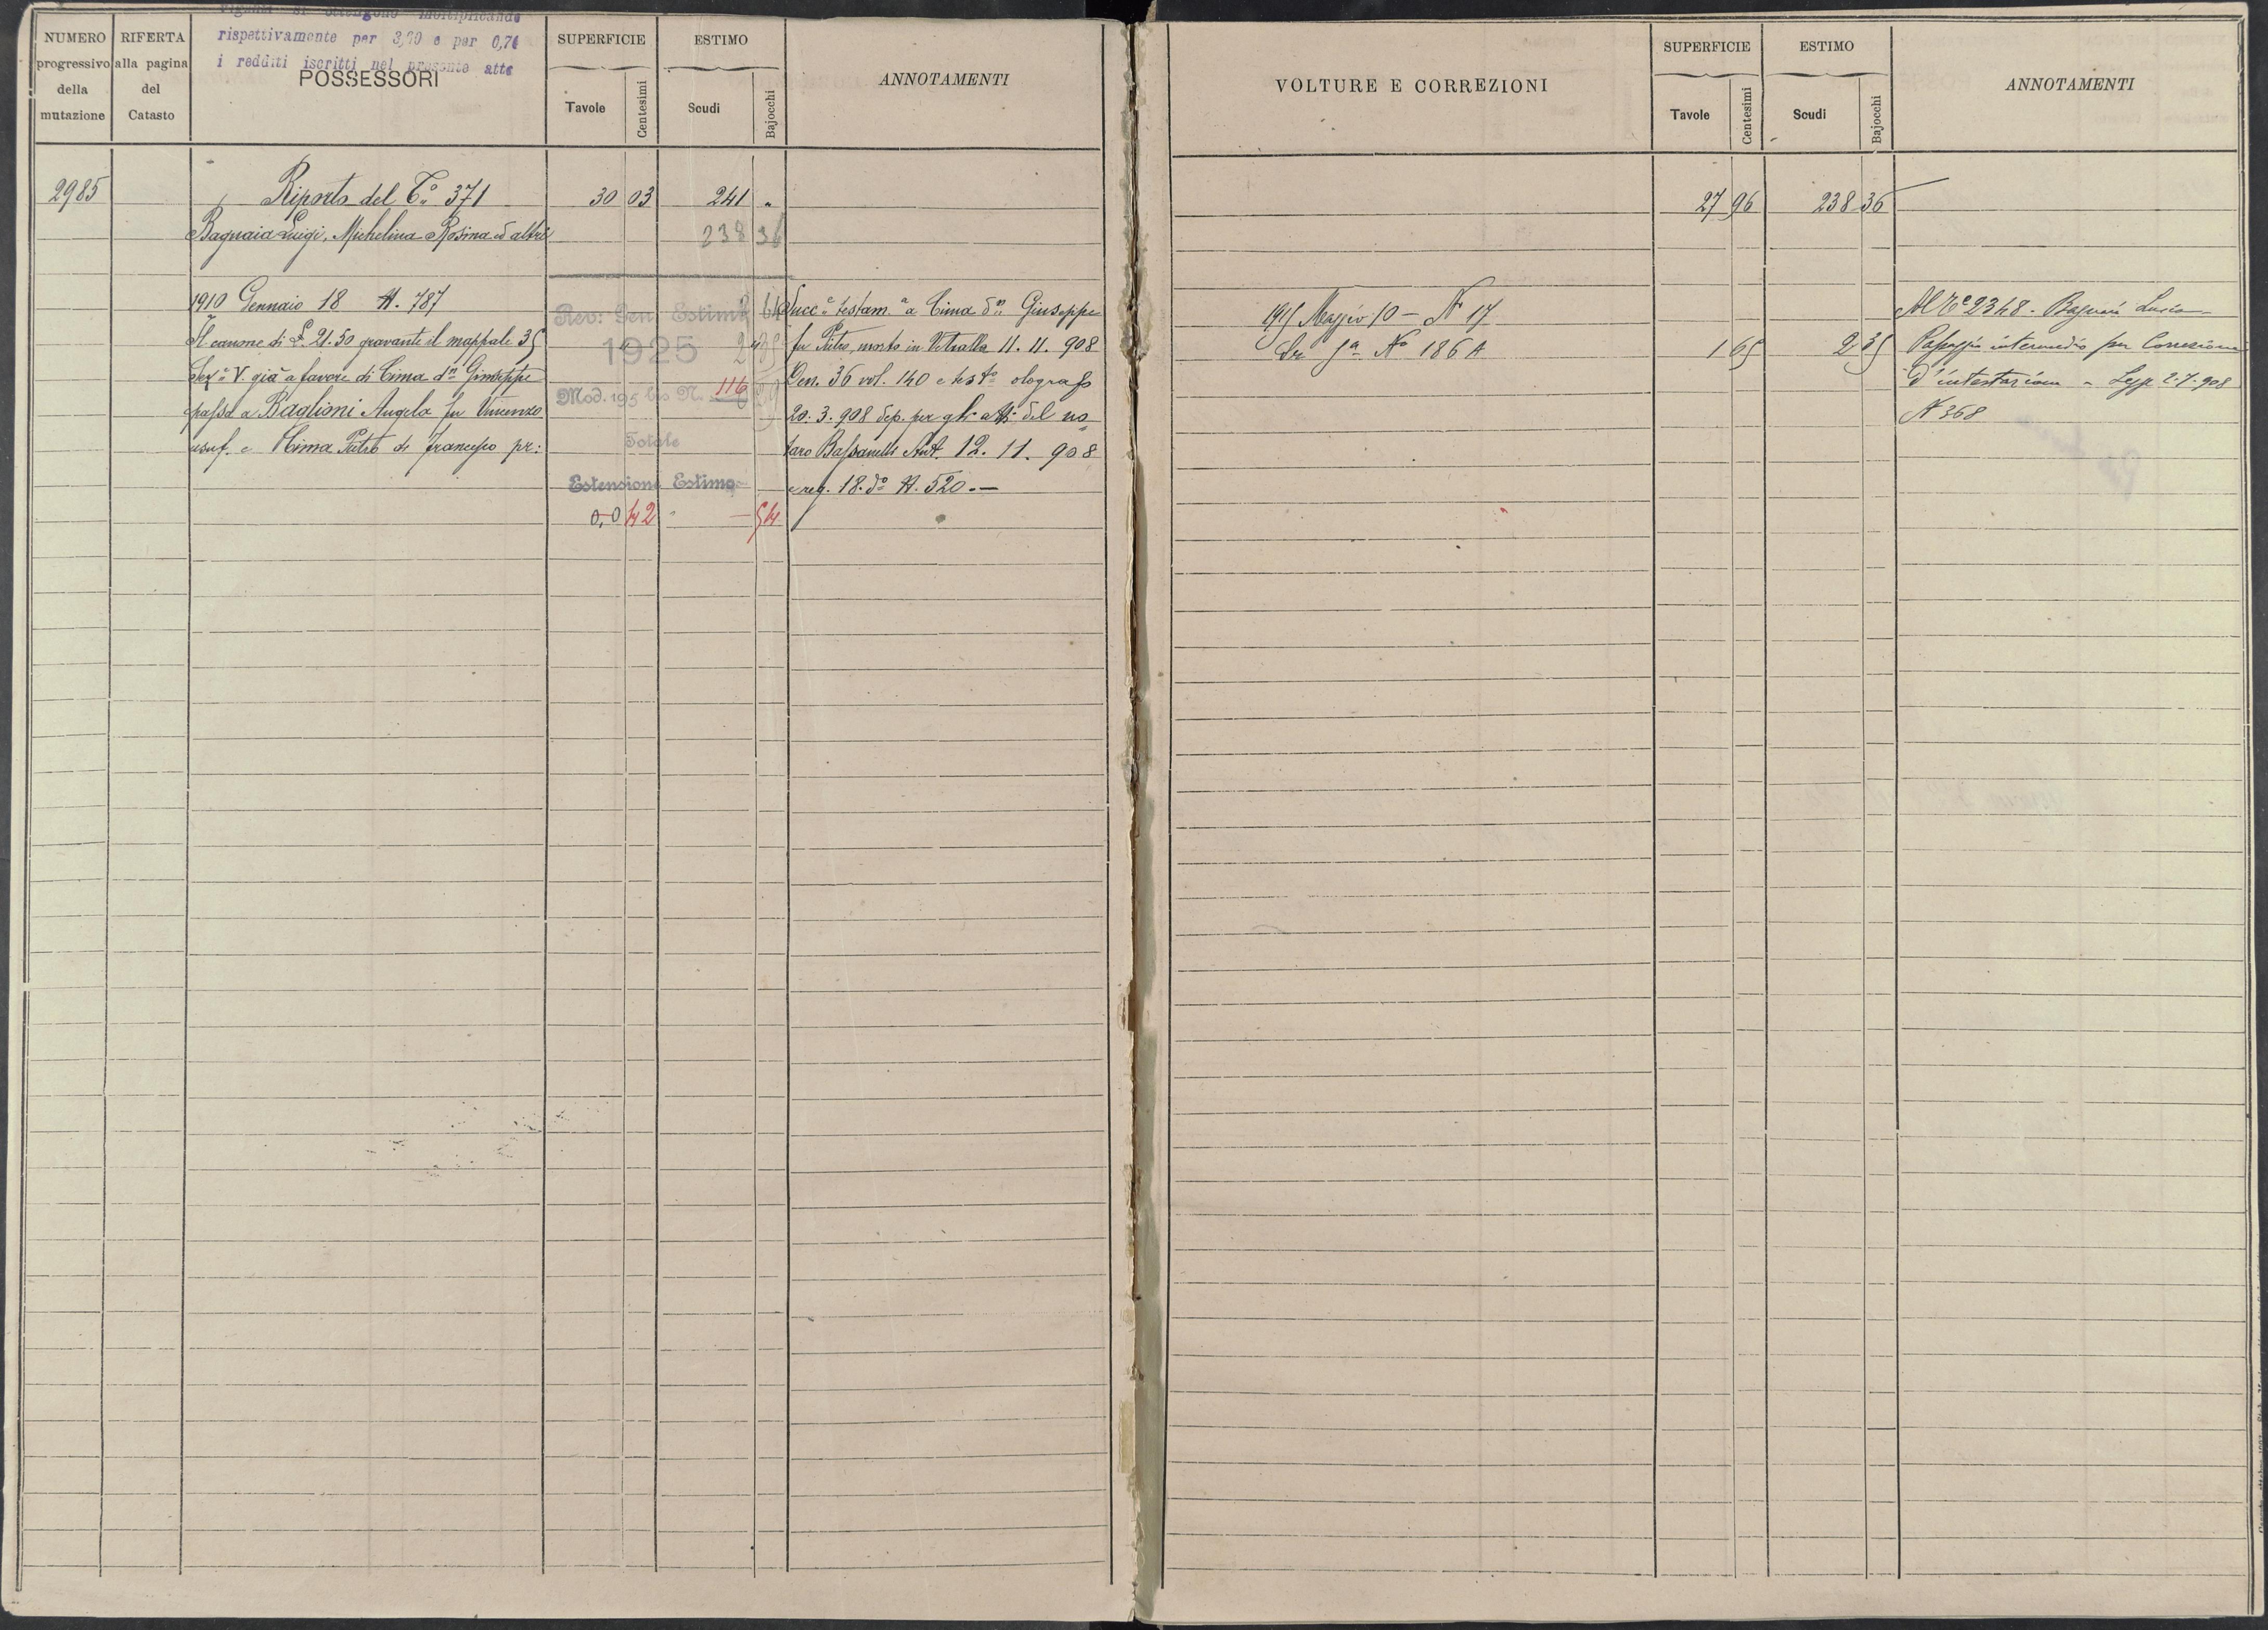 rispettivamente per 3,70 e per 0,70
i redditi iscritti nel presente atto
NUMERO progressivo della mutazione
RIFERTA alla pagina del Catasto
POSSESSORI
SUPERFICIE
Tavole Centesimi
ESTIMO
Scudi Bajocchi
ANNOTAMENTI
2985 Riporto del C.º 371 30 03 241 "
Bagnaia Luigi, Michelina Rosina ed altri 238 36
1910 Gennaio 18 N. 787
Il canone di L. 21.50 gravante il mappale 35
Sezª V. già a favore di Cima dn Giuseppe
passa a Baglioni Angela fu Vincenzo
usuf. e Cima Pietro di Francesco pr:
Rev: Gen. Estimi
1925
Mod. 195 bis N. 116
Totale
Estensione Estimo
0,0 42 — 54
Succª testamª a Cima dn Giuseppe
fu Pietro, morto in Vetralla 11.11.908
Den. 36 vol. 140 e testº olografo
20.3.908 dep. per gli atti del no
taro Bassanelli Ant. 12.11.908
e reg. 18 dº N. 520.—
VOLTURE E CORREZIONI
SUPERFICIE
Tavole Centesimi
ESTIMO
Scudi Bajocchi
ANNOTAMENTI
27 96 238 36
1915 Maggio 10 — Nº 17
Sez Iª Nº 186 A 1 65 2 35
Al Cº 2348. Bagnaia Lucia
Passaggio intermedio per Correzione
d'intestazione - Legge 2.7.908
N 368